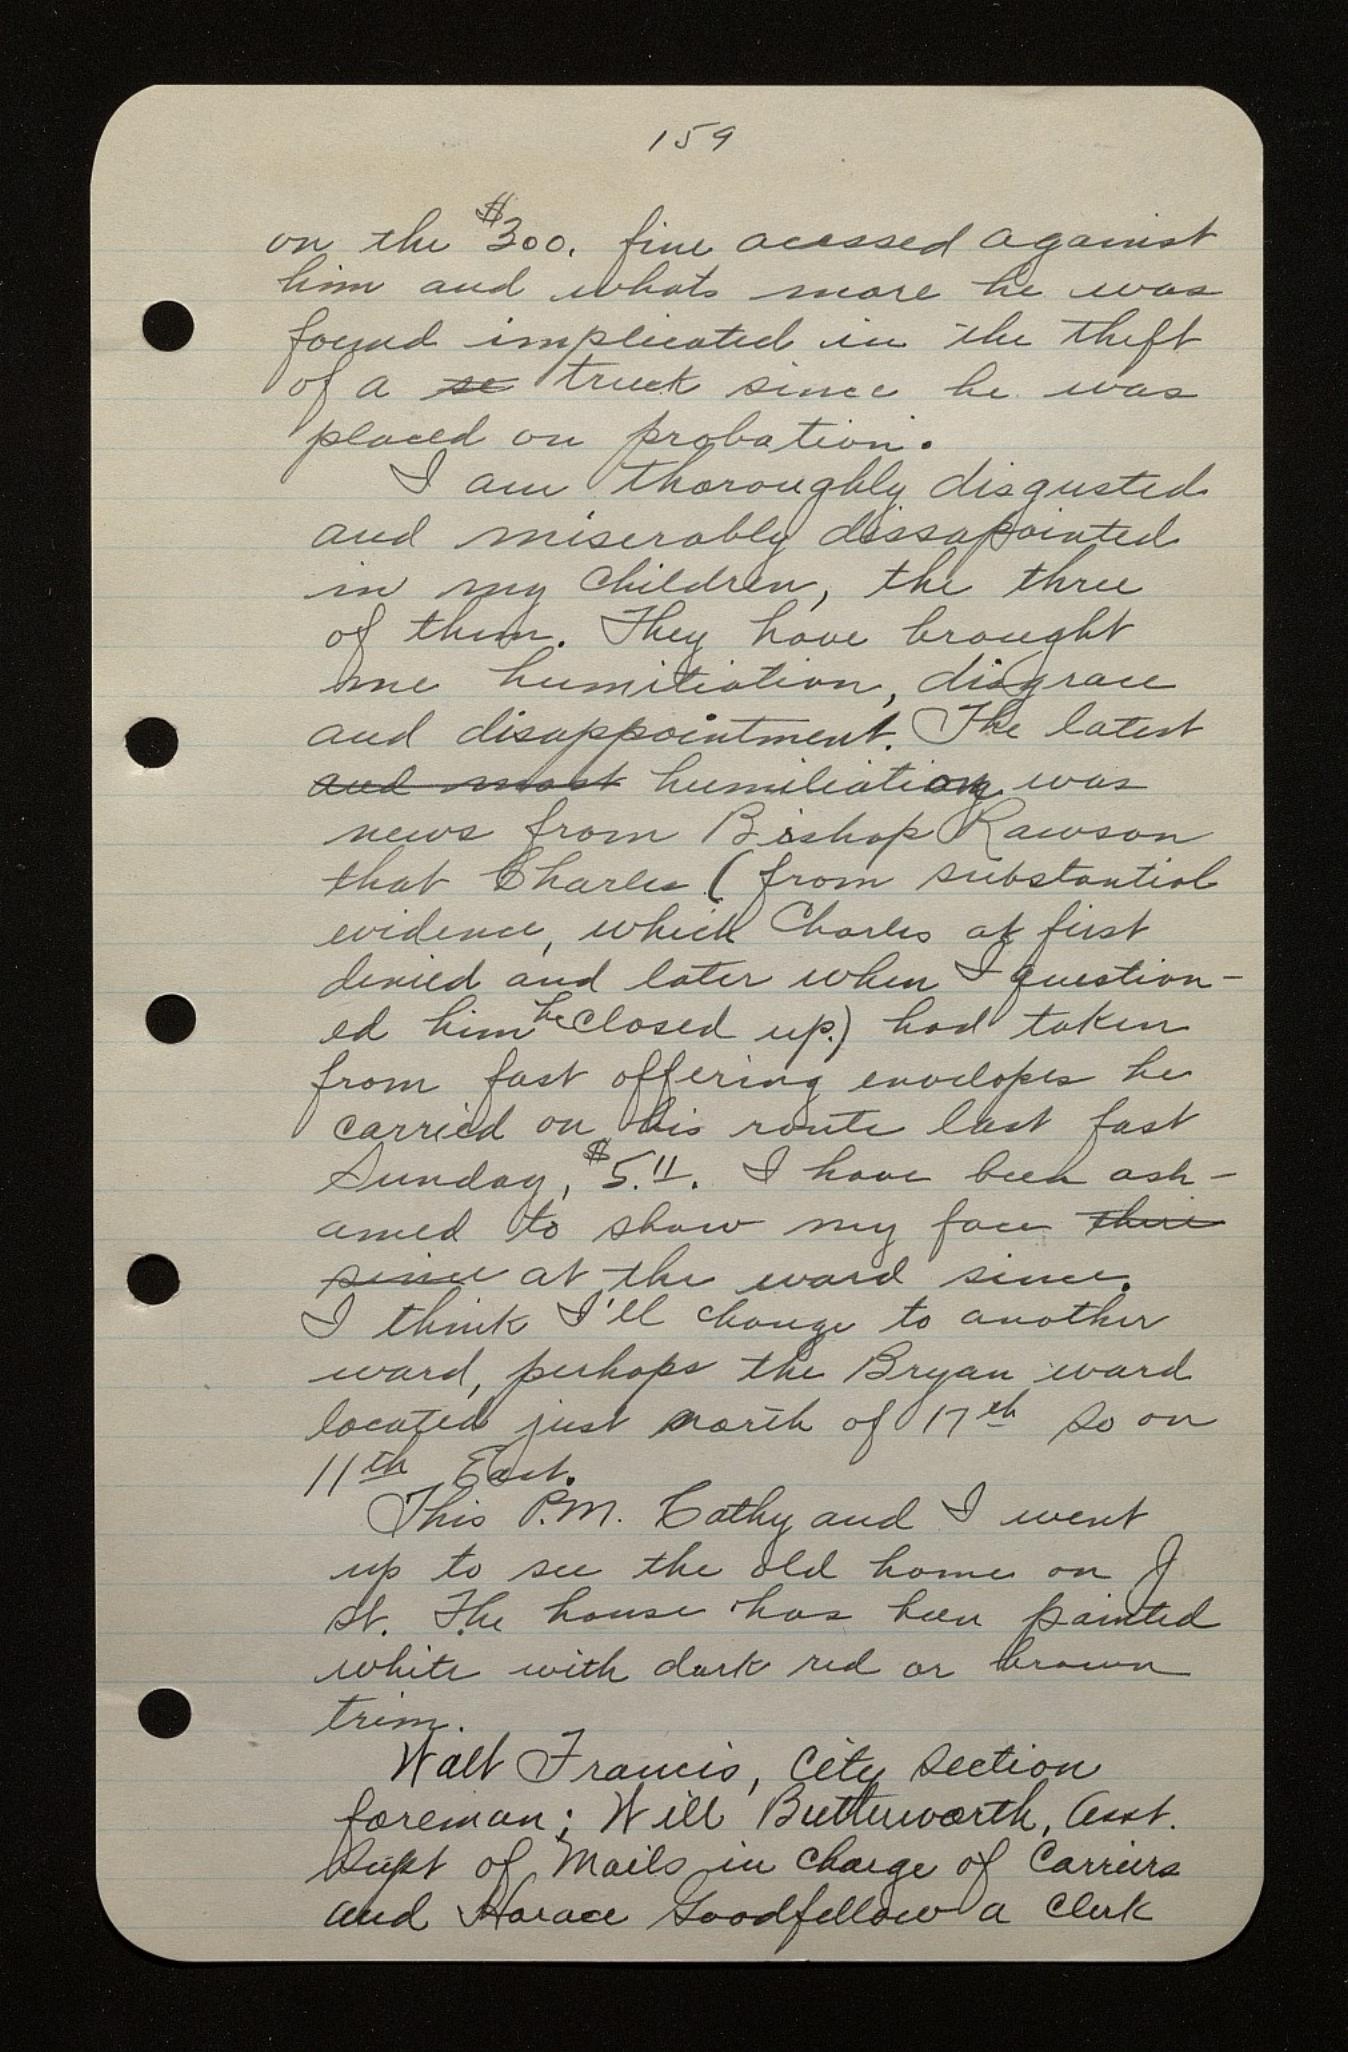 159
on the $300. fine acessed against
him and whats more he was
found implicated in the theft
of a se truck since he was
placed on probation.
I am thoroughly disgusted
and miserably dissapointed
in my children, the three
of them. They have brought
me humiliation, disgrace
and disappointment. The latest
and most humiliation was
news from Bishop Rawson
that Charles (from substantial
evidence, which Charles at first
denied and later when I question-
ed him he closed up.) had taken
from fast offering envelopes he
carried on his route last fast
Sunday, $5.11. I have been ash-
amed to show my face there
since at the ward since.
I think I'll change to another
ward, perhaps the Bryan ward
located just north of 17th So on
11th East.
This P.M. Cathy and I went
up to see the old home on J
St. The house has been painted
white with dark red or brown
trim.
Walt Francis, City Section
foreman; Will Butterworth, Asst.
Supt of Mails in charge of Carriers
and Horace Goodfellow a clerk